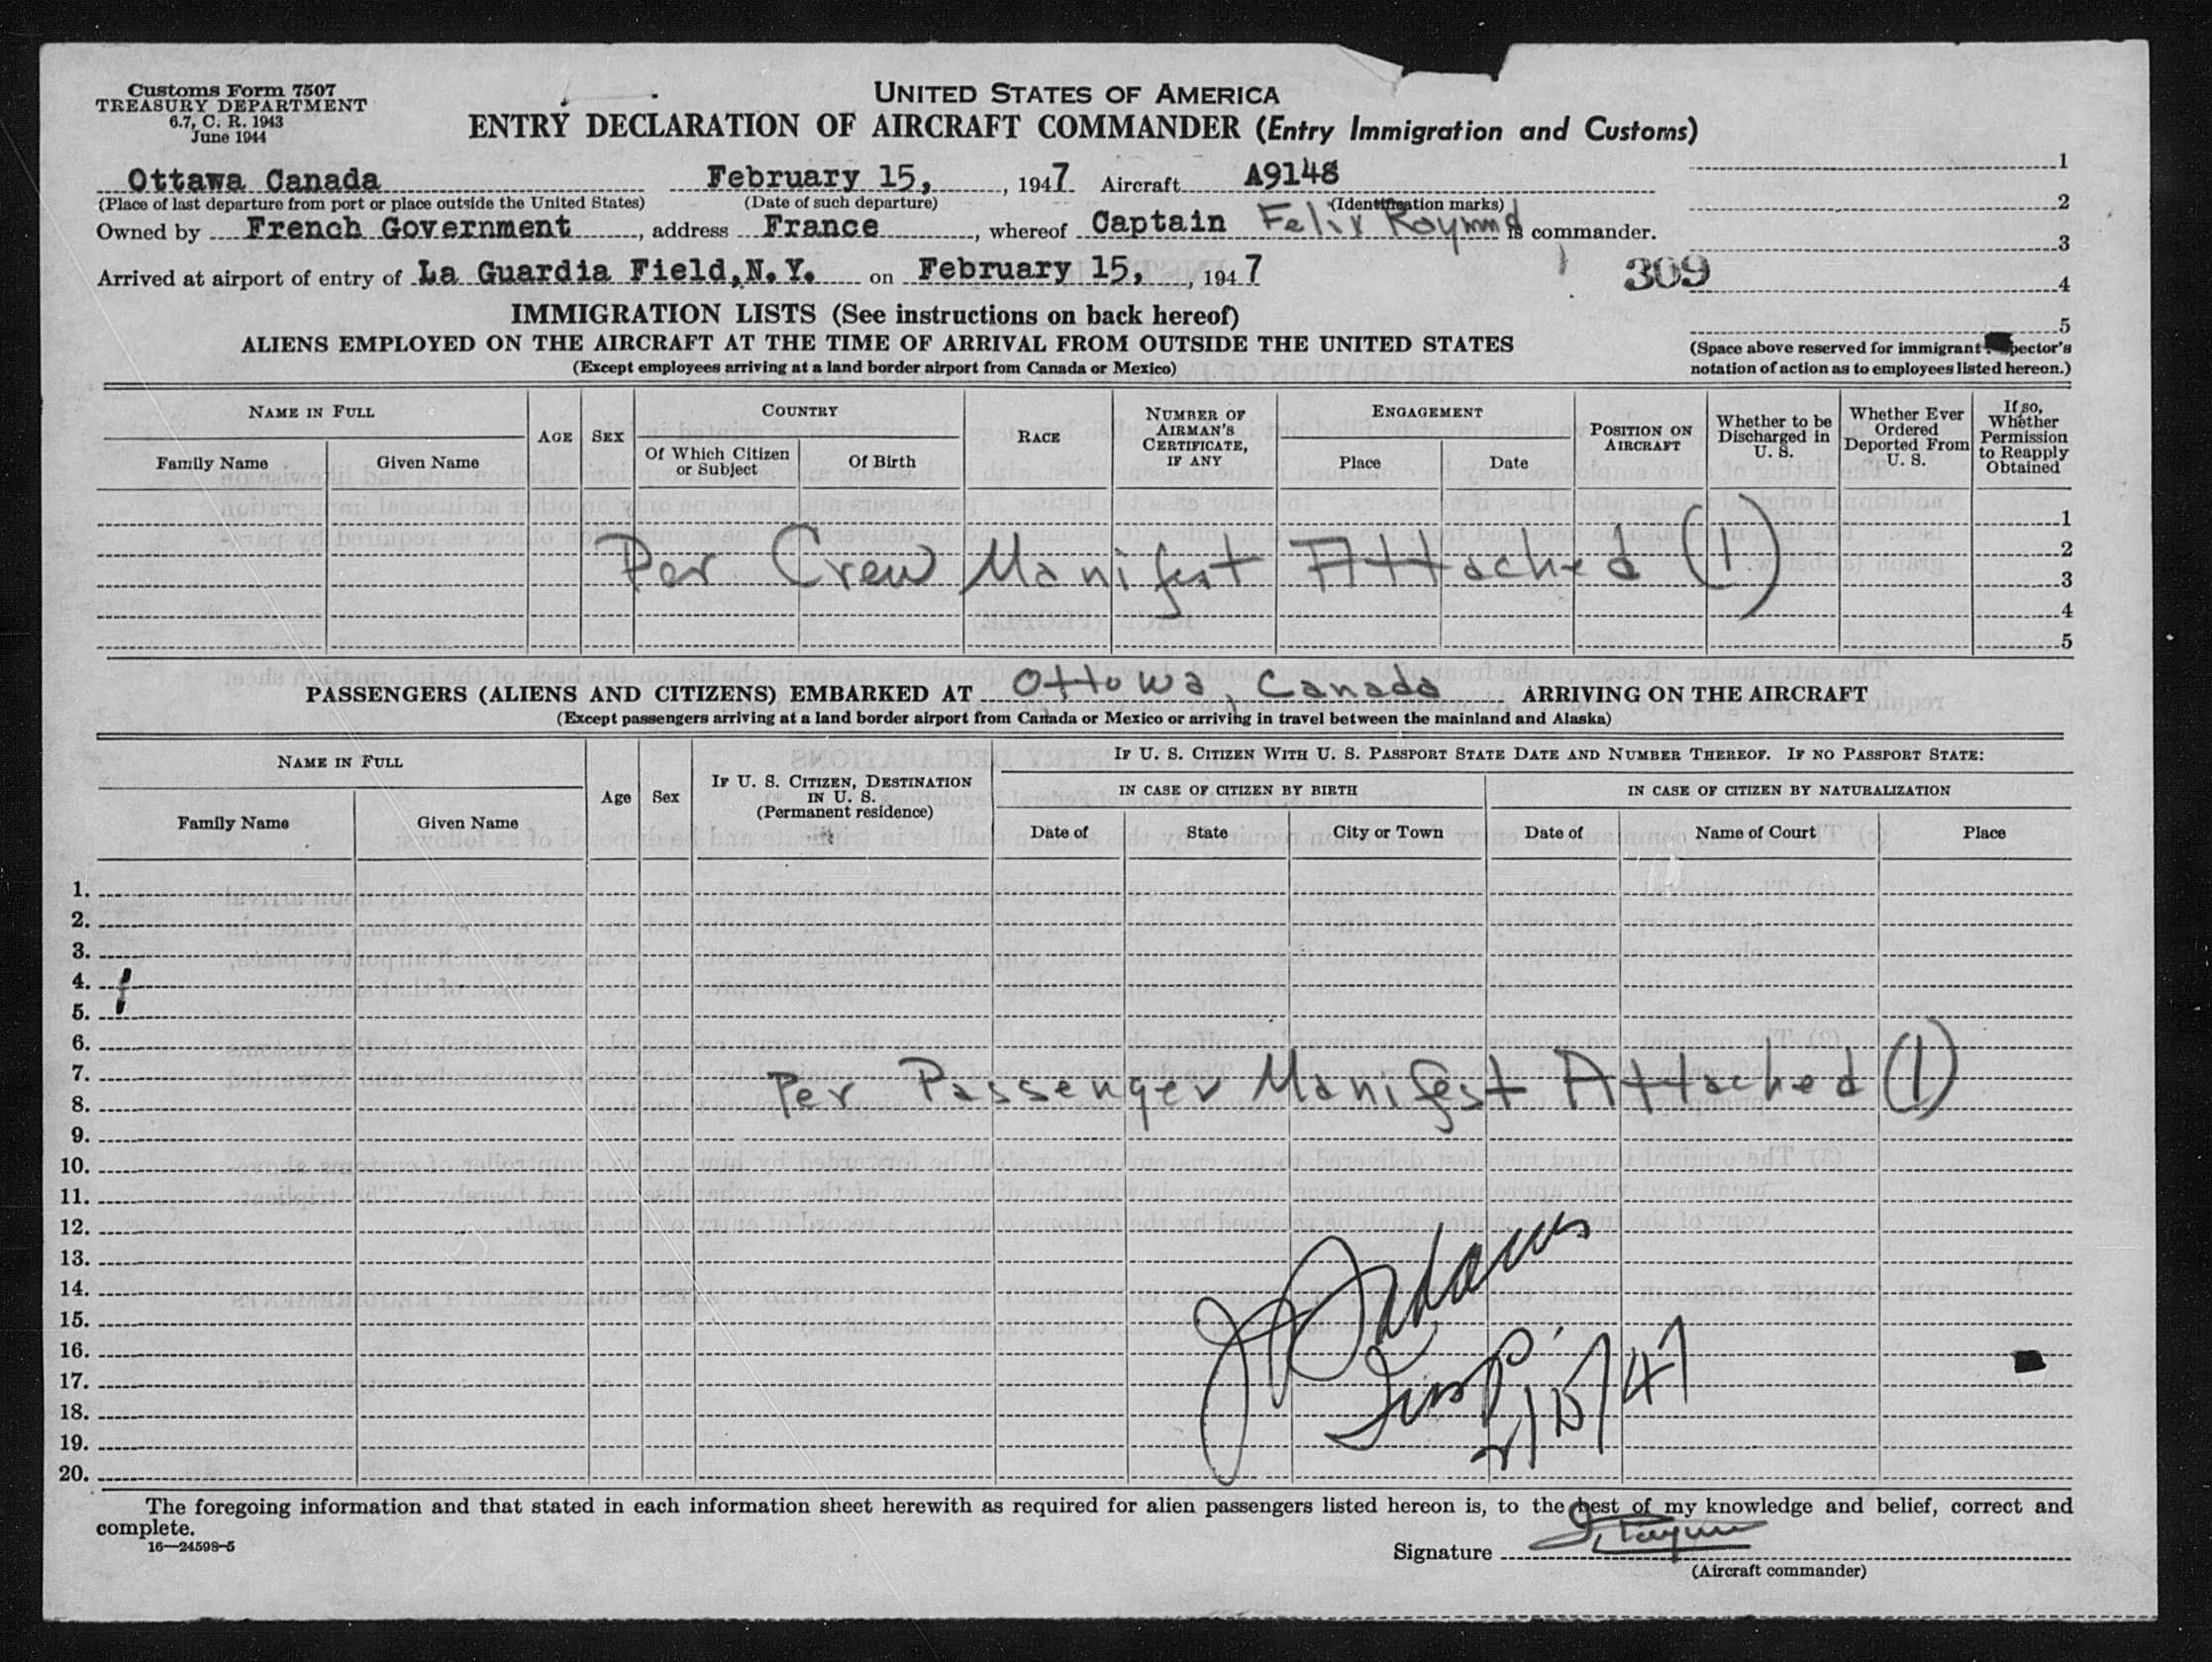 Customs Form 7507
TREASURY DEPARTMENT
6.7, C. R. 1943
June 1944
UNITED STATES OF AMERICA
ENTRY DECLARATION OF AIRCRAFT COMMANDER (Entry Immigration and Customs)
Ottawa Canada February 15, , 1947 Aircraft A9148
(Place of last departure from port or place outside the United States) (Date of such departure) (Identification marks)
Owned by French Government , address France , whereof Captain Felix Raymnd is commander.
Arrived at airport of entry of La Guardia Field, N. Y. on February 15, , 1947
309
1
2
3
4
5
(Space above reserved for immigrant inspector's
notation of action as to employees listed hereon.)
IMMIGRATION LISTS (See instructions on back hereof)
ALIENS EMPLOYED ON THE AIRCRAFT AT THE TIME OF ARRIVAL FROM OUTSIDE THE UNITED STATES
(Except employees arriving at a land border airport from Canada or Mexico)
NAME IN FULL
Family Name Given Name
AGE
SEX
COUNTRY
Of Which Citizen or Subject Of Birth
RACE
NUMBER OF AIRMAN'S CERTIFICATE, IF ANY
ENGAGEMENT
Place Date
POSITION ON AIRCRAFT
Whether to be Discharged in U. S.
Whether Ever Ordered Deported From U. S.
If so, Whether Permission to Reapply Obtained
1
2
Per Crew Manifest Attached (1)
3
4
5
PASSENGERS (ALIENS AND CITIZENS) EMBARKED AT Ottowa, Canada ARRIVING ON THE AIRCRAFT
(Except passengers arriving at a land border airport from Canada or Mexico or arriving in travel between the mainland and Alaska)
NAME IN FULL
Family Name Given Name
Age
Sex
IF U. S. CITIZEN, DESTINATION IN U. S.
(Permanent residence)
IF U. S. CITIZEN WITH U. S. PASSPORT STATE DATE AND NUMBER THEREOF. IF NO PASSPORT STATE:
IN CASE OF CITIZEN BY BIRTH IN CASE OF CITIZEN BY NATURALIZATION
Date of State City or Town Date of Name of Court Place
1.
2.
3.
4.
5.
6.
7.
Per Passenger Manifest Attached (1)
8.
9.
10.
11.
12.
13.
14.
Adams
15.
16.
17.
Insp.
2/15/47
18.
19.
20.
The foregoing information and that stated in each information sheet herewith as required for alien passengers listed hereon is, to the best of my knowledge and belief, correct and
complete.
16—24598-5
Signature
(Aircraft commander)